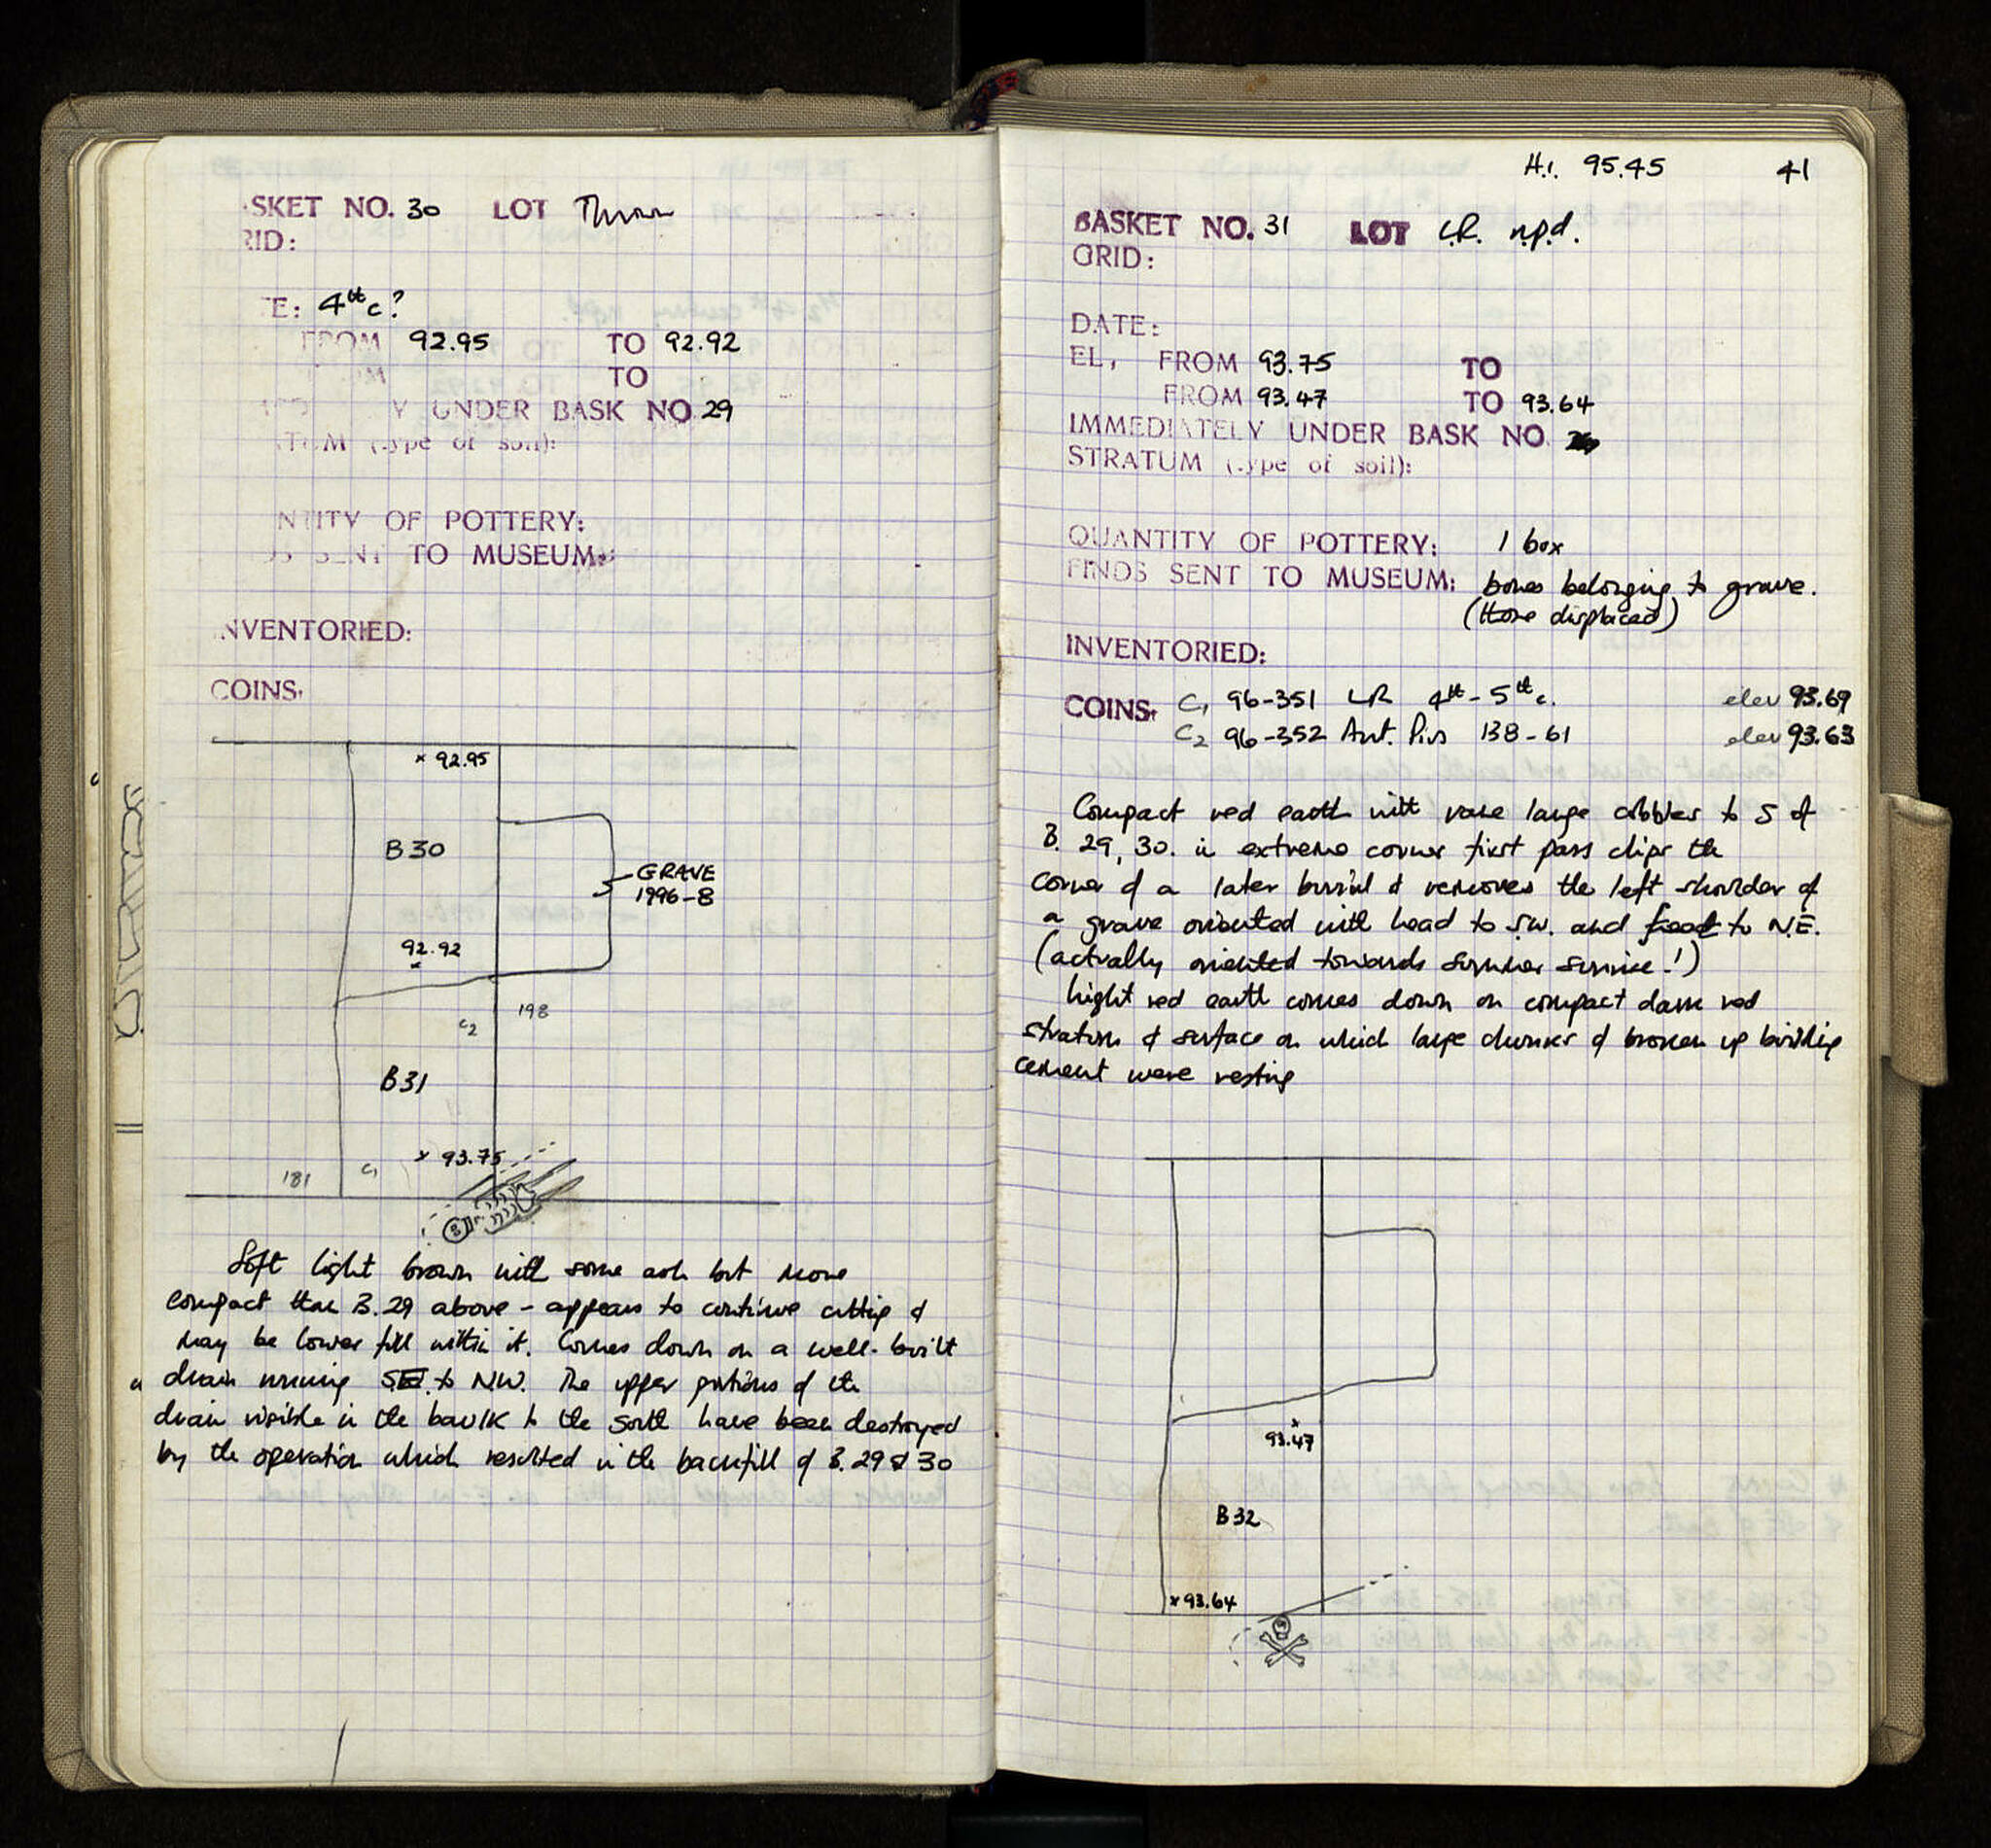 SKET NO. 30 LOT Thrown
RID:
E: 4th c?
FROM 92.95 TO 92.92
M TO
Y UNDER BASK NO 29
TUM (type of soil):
NTITY OF POTTERY:
SENT TO MUSEUM:
NVENTORIED:
COINS.
× 92.95
B30
GRAVE
1996-8
92.92
×
198
C2
B31
× 93.75
181 C1
Soft light brown with some ash but more
compact than B.29 above - appears to continue cutting &
may be lower fill within it. Comes down on a well-built
drain running SE to N.W. The upper portions of the
drain visible in the baulk to the south have been destroyed
by the operation which resulted in the backfill of B.29 & 30
H.I. 95.45 41
BASKET NO. 31 LOT L.R. n.p.d.
GRID:
DATE:
EL, FROM 93.75 TO
FROM 93.47 TO 93.64
IMMEDIATELY UNDER BASK NO.
STRATUM (type of soil):
QUANTITY OF POTTERY: 1 box
FINDS SENT TO MUSEUM: bones belonging to grave.
(those displaced)
INVENTORIED:
COINS. C1 96-351 LR 4th - 5th c. elev 93.69
C2 96-352 Ant. Pius 138-61 elev 93.63
Compact red earth with rare large cobbles to S of
B. 29, 30. in extreme corner first pass clips the
corner of a later burial & removes the left shoulder of
a grave oriented with head to S.W. and feet to N.E.
(actually oriented towards summer sunrise!)
light red earth comes down on compact dark red
stratum & surface on which large chunks of broken up building
cement were resting
×
93.47
B32
× 93.64